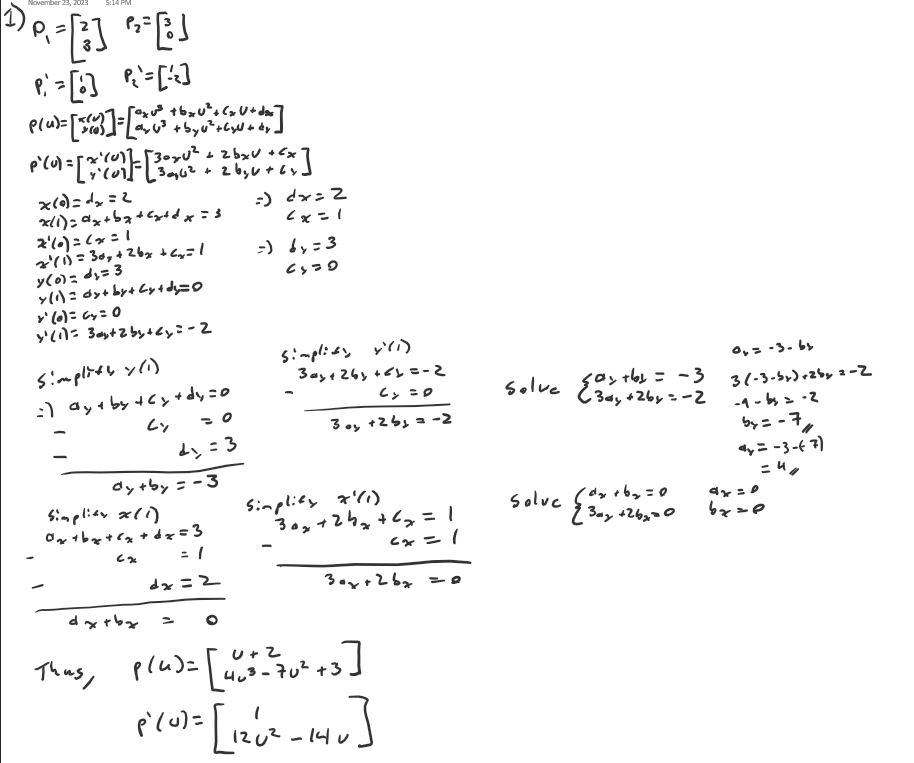 November 23, 2023 5:14 PM
1)
P₁ = [2 3] P₂ = [3 0]
P₁' = [1 0] P₂' = [1 -2]
P(u) = [x(u) y(u)] = [aₓu³ + bₓu² + cₓu + dₓ a_yu³ + b_yu² + c_yu + d_y]
P'(u) = [x'(u) y'(u)] = [3aₓu² + 2bₓu + cₓ 3a_yu² + 2b_yu + c_y]
x(0) = dₓ = 2
x(1) = aₓ + bₓ + cₓ + dₓ = 3
x'(0) = cₓ = 1
x'(1) = 3aₓ + 2bₓ + cₓ = 1
y(0) = d_y = 3
y(1) = a_y + b_y + c_y + d_y = 0
y'(0) = c_y = 0
y'(1) = 3a_y + 2b_y + c_y = -2
=) dₓ = 2
cₓ = 1
=) d_y = 3
c_y = 0
Simplify y(1)
=) a_y + b_y + c_y + d_y = 0
- c_y = 0
- d_y = 3
a_y + b_y = -3
Simplify y'(1)
3a_y + 2b_y + c_y = -2
- c_y = 0
3a_y + 2b_y = -2
Solve { a_y + b_y = -3
3a_y + 2b_y = -2
a_y = -3 - b_y
3(-3 - b_y) + 2b_y = -2
-9 - b_y = -2
b_y = -7 //
a_y = -3 - (-7)
= 4 //
Simplify x(1)
aₓ + bₓ + cₓ + dₓ = 3
- cₓ = 1
- dₓ = 2
aₓ + bₓ = 0
Simplify x'(1)
3aₓ + 2bₓ + cₓ = 1
- cₓ = 1
3aₓ + 2bₓ = 0
Solve { aₓ + bₓ = 0
3aₓ + 2bₓ = 0
aₓ = 0
bₓ = 0
Thus, P(u) = [u + 2 4u³ - 7u² + 3]
P'(u) = [1 12u² - 14u]